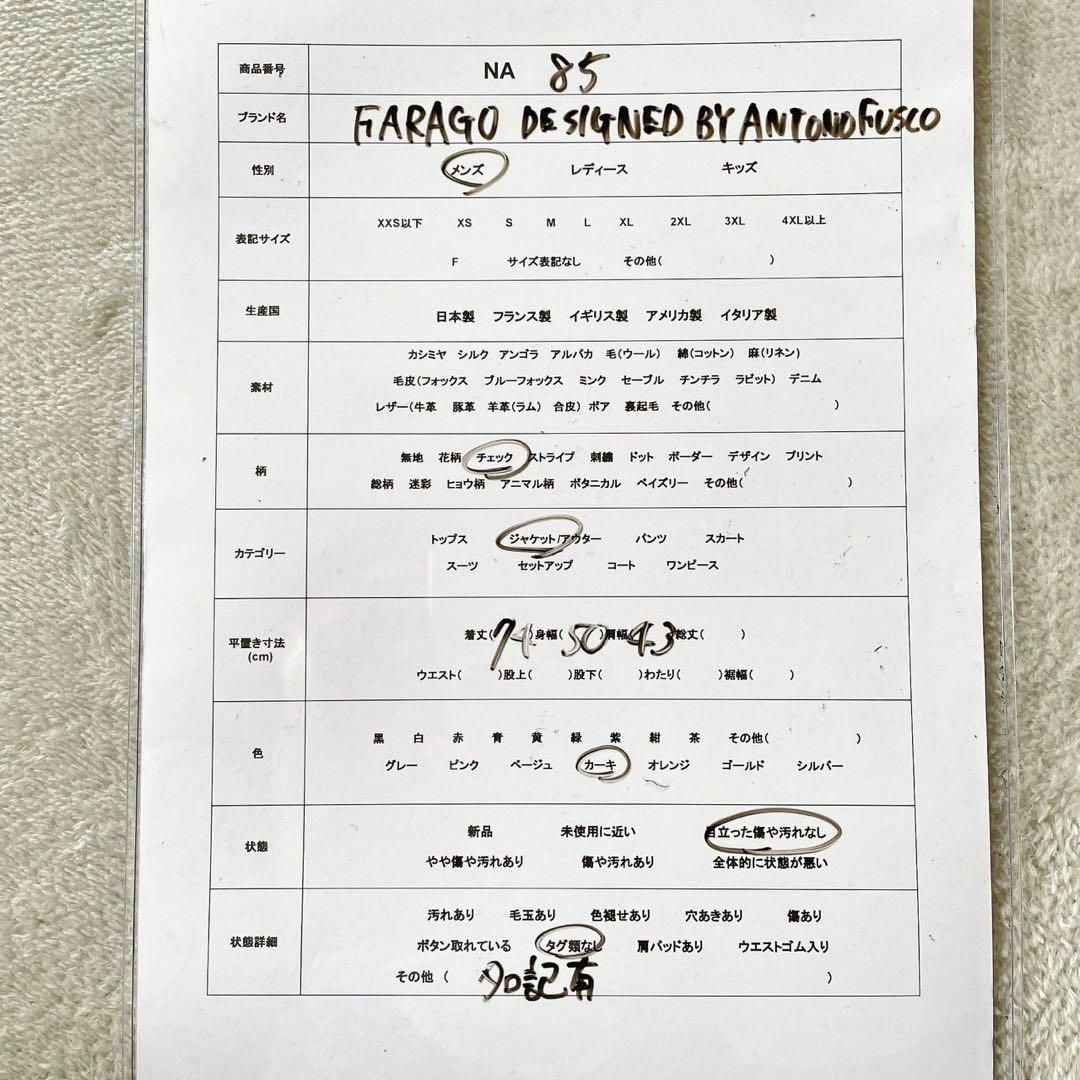 商品番号 NA 85
ブランド名 FARAGO DESIGNED BY ANTONO FUSCO
性別 メンズ レディース キッズ
XXS以下 XS S M L XL 2XL 3XL 4XL以上
表記サイズ
F サイズ表記なし その他( )
生産国 日本製 フランス製 イギリス製 アメリカ製 イタリア製
カシミヤ シルク アンゴラ アルパカ 毛(ウール) 綿(コットン) 麻(リネン)
素材 毛皮(フォックス ブルーフォックス ミンク セーブル チンチラ ラビット) デニム
レザー(牛革 豚革 羊革(ラム) 合皮) ボア 裏起毛 その他( )
無地 花柄 チェック ストライプ 刺繍 ドット ボーダー デザイン プリント
柄
総柄 迷彩 ヒョウ柄 アニマル柄 ボタニカル ペイズリー その他( )
トップス ジャケット/アウター パンツ スカート
カテゴリー
スーツ セットアップ コート ワンピース
平置き寸法 着丈(74)身幅(50)肩幅(43)総丈( )
(cm)
ウエスト( )股上( )股下( )わたり( )裾幅( )
黒 白 赤 青 黄 緑 紫 紺 茶 その他( )
色
グレー ピンク ベージュ カーキ オレンジ ゴールド シルバー
新品 未使用に近い 目立った傷や汚れなし
状態
やや傷や汚れあり 傷や汚れあり 全体的に状態が悪い
汚れあり 毛玉あり 色褪せあり 穴あきあり 傷あり
状態詳細 ボタン取れている タグ類なし 肩パッドあり ウエストゴム入り
その他 ( 記有 )